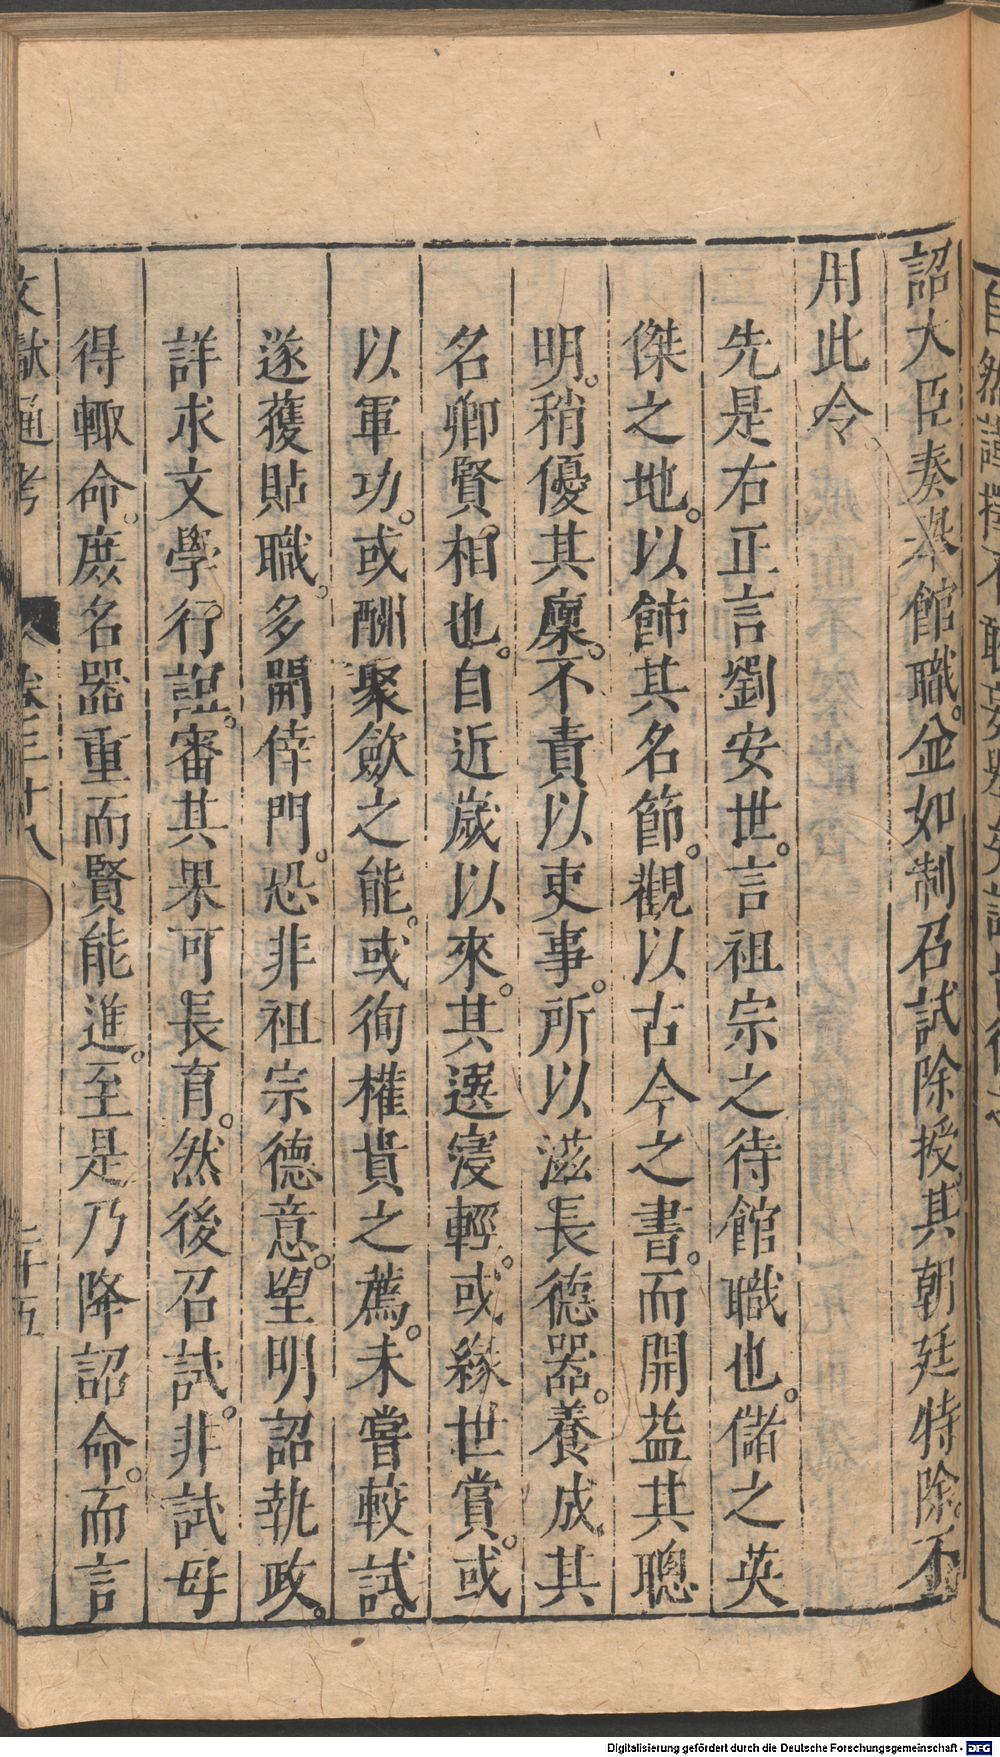 詔大臣奏舉館職。並如制召試除授。其朝廷特除。不
用此令。
先是右正言劉安世。言祖宗之待館職也。儲之英
傑之地。以飭其名節。觀以古今之書。而開益其聰
明。稍優其廩。不責以吏事。所以滋長德器。養成其
名卿賢相也。自近歲以來。其選寖輕。或緣世賞。或
以軍功。或酬聚歛之能。或徇權貴之薦。未嘗較試。
遂獲貼職。多開倖門。恐非祖宗德意。望明詔執政。
詳求文學行誼。審其果可長育。然後召試。非試毋
得輙命。庶名器重而賢能進。至是乃降詔命。而言
文獻通考 卷三十八 二十五
Digitalisierung gefördert durch die Deutsche Forschungsgemeinschaft - DFG